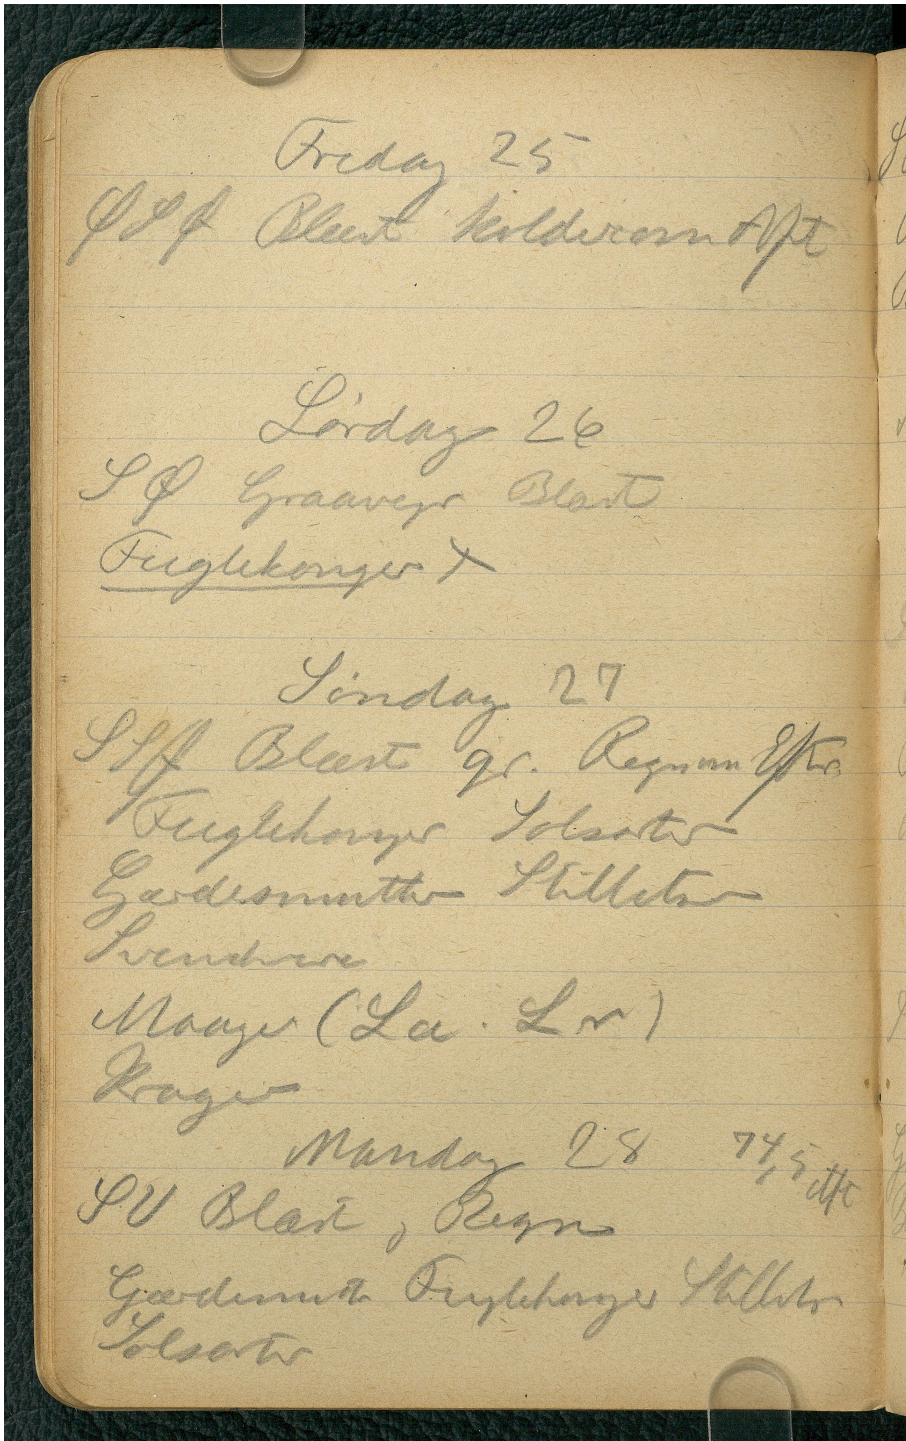 Fredag 25
ØSØ Blæst koldere om Aft
Lørdag 26
SØ Graavejr Blæst
Fuglekonger X
Søndag 27
SSØ Blæst gr. Regn om Efter
Fuglekonger Solsorter
Gærdesmutter Stillitser
Svenskere
Maager (La. Lr)
Krager
Mandag 28 74,5 Aft
SV Blæst, Regn
Gærdesmutte Fuglekonger Stillitser
Solsorter